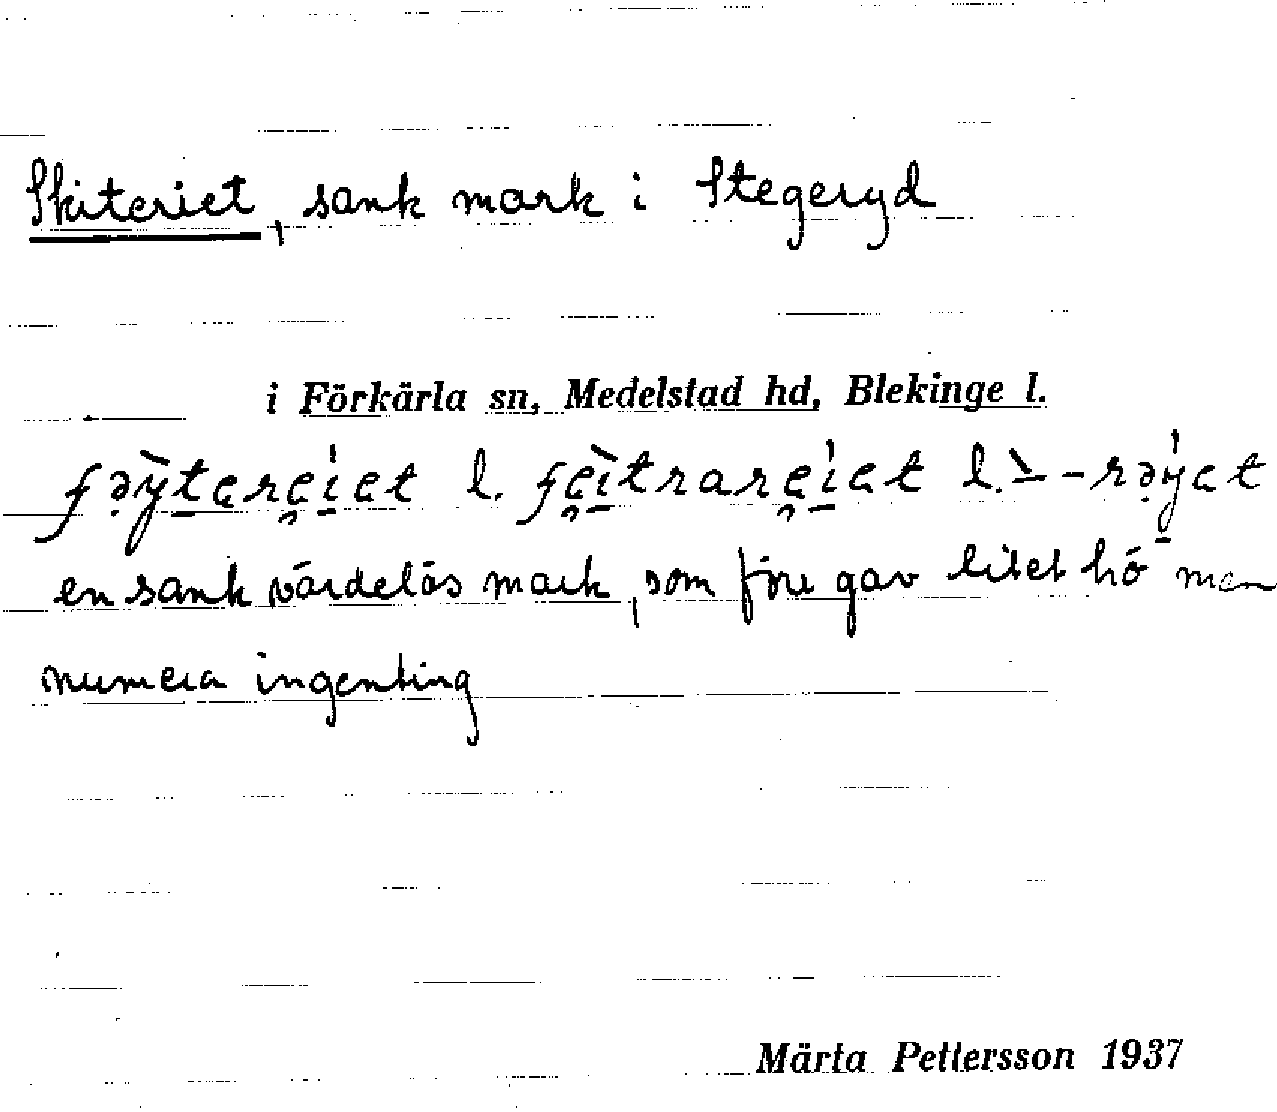 Skiteriet, sank mark i Stegeryd
i Förkärla sn, Medelstad hd, Blekinge l.
l. l.
en sank värdelös mark, som förr gav litet hö men
numera ingenting
Märta Pettersson 1937